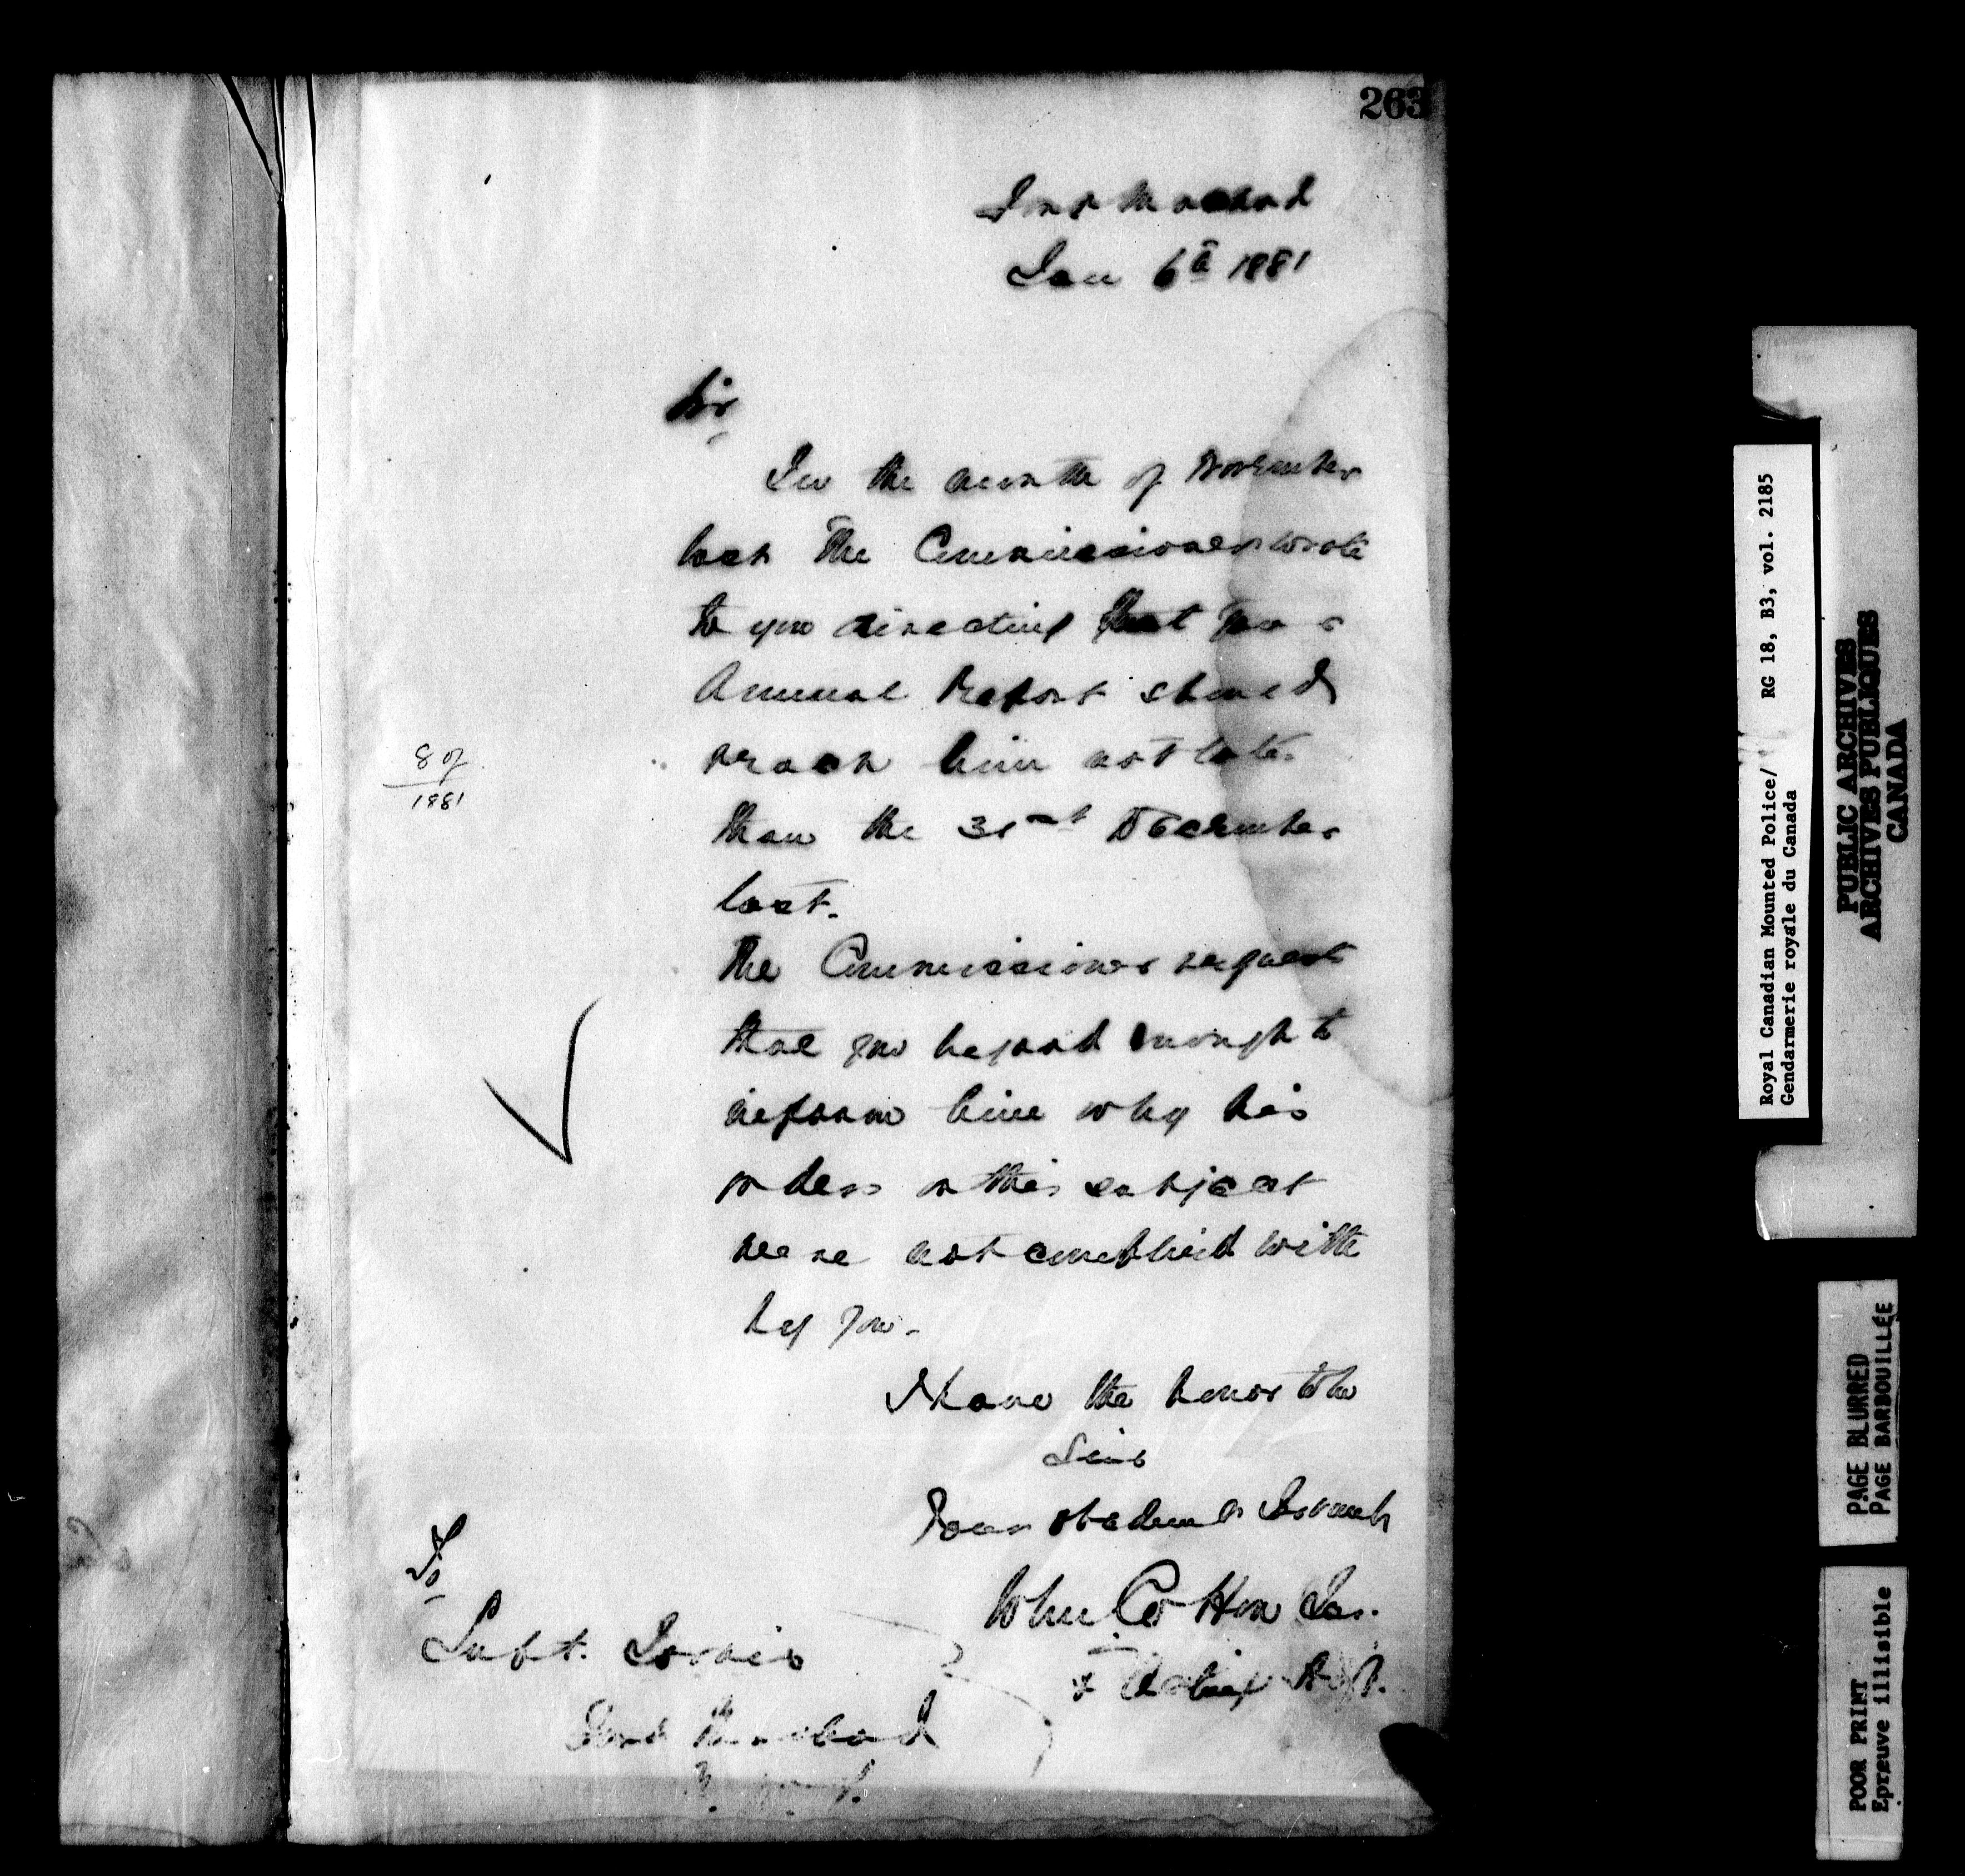 263
Fort Macleod
Jan 6th 1881
Sir
In the month of November
last The Commissioner wrote
to you directing that your
Annual Report should
reach him not later
than the 31st December
last.
The Commissioner requests
that you be good enough to
inform him why his
orders on this subject
were not complied with
by you.
I have the honor to be
Sir
Your obedient Servant
John Cotton
& Acting Adjt.
8 of
1881
To
Supt.
Fort Macleod
Royal Canadian Mounted Police/ RG 18, B3, vol. 2185
Gendarmerie royale du Canada
PUBLIC ARCHIVES
ARCHIVES PUBLIQUES
CANADA
PAGE BLURRED
PAGE BARBOUILLÉE
POOR PRINT
Epreuve illisible